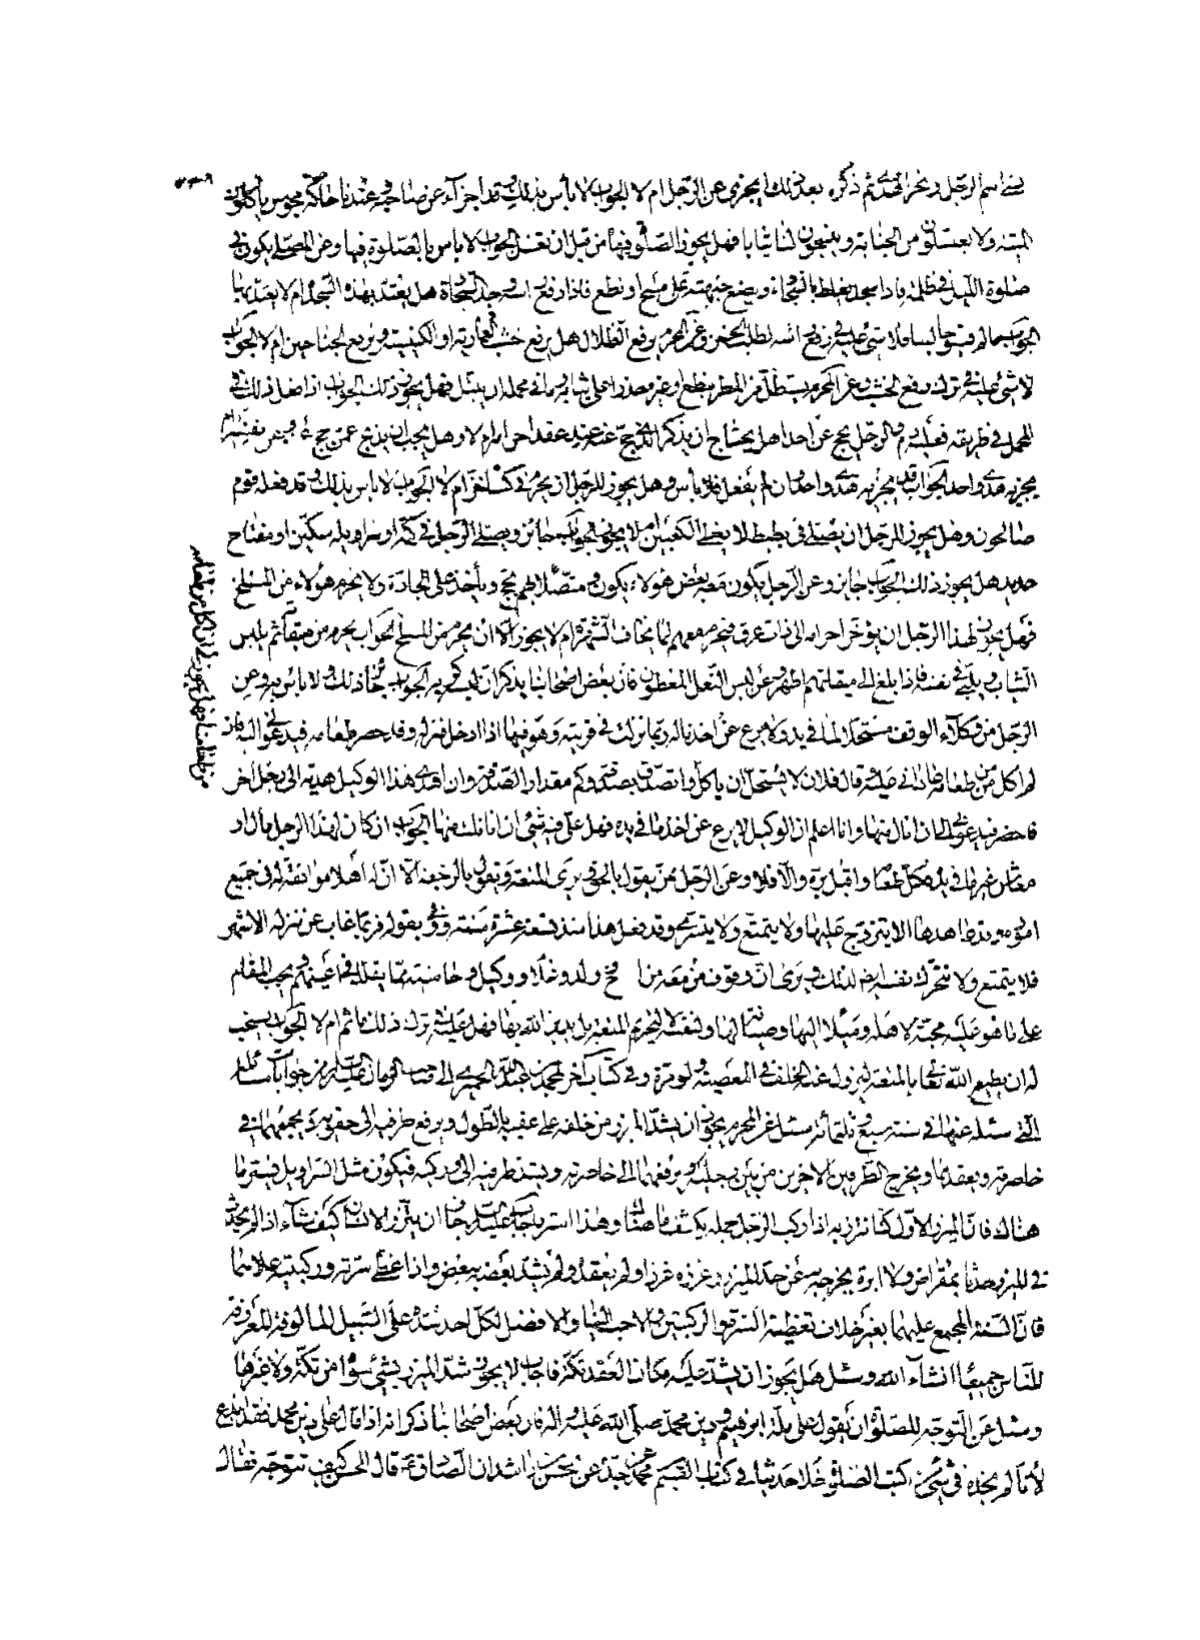 اسم الرجل ونحر الهدي ثم ذكره بعد ذلك ايجزي عن الرجل ام لا الجواب لا باس بذلك وقد اجزأ عن صاحبه عندنا حاكة مجوس ياكلون
الميتة ولا يغتسلون من الجنابة وينسجون لنا ثيابا فهل يجوز الصلوة فيها من قبل ان تغسل الجواب لا باس بالصلوة فيها وعن المصلي يكون في
صلوة الليل في ظلمة فاذا سجد يغلط بالسجادة ويضع جبهته على مسح او نطع فاذا رفع راسه وجد السجادة هل يعتد بهذه السجدة ام لا يعتد بها
الجواب ما لم يستو جالسا فلا شئ عليه في رفع راسه لطلب الخمرة وعن المحرم يرفع الظلال هل يرفع خشب العمارية او الكنيسة ويرفع الجناحين ام لا الجواب
لا شئ عليه في ترك رفع الخشب وعن المحرم يستظل من المطر بنطع او غيره حذرا على ثيابه وما في محمله ان يبتل فهل يجوز ذلك الجواب اذا فعل ذلك في
المحمل في طريقه فعليه دم والرجل يحج عن احد هل يحتاج ان يذكر الذي حج عنه عند عقد احرامه ام لا وهل يجب ان يذبح عمن حج عنه وعن نفسه ام
يجزيه هدي واحد الجواب قد يجزيه هدي واحد وان لم يفعل فلا باس وهل يجوز للرجل ان يحرم في كساء خز ام لا الجواب لا باس بذلك وقد فعله قوم
صالحون وهل يجوز للرجل ان يصلي في بطيط لا يغطي الكعبين ام لا يجوز الجواب جائز ويصلي الرجل في كمه او سراويله سكين او مفتاح
حديد هل يجوز ذلك الجواب جايز وعن الرجل يكون معه بعض هؤلاء يكون متصلا بهم يحج وياخذ على الجادة ولا يحرم هؤلاء من المسلخ
فهل يجوز لهذا الرجل ان يؤخر احرامه الى ذات عرق فيحرم معهم لما يخاف الشهرة ام لا يجوز الا ان يحرم من المسلخ الجواب يحرم من ميقاته ثم يلبس
الثياب ويلبي في نفسه فاذا بلغ الى ميقاتهم اظهر وعن لبس النعل المعطون فان بعض اصحابنا يذكر ان لبسه كريه الجواب جائز ذلك ولا باس به وعن
الرجل من وكلاء الوقف مستحلا لما في يده ولا يرع عن اخذ ماله ربما نزلت في قريته وهو فيها اذا ادخل منزله وقد حضر طعامه فيدعوني اليه فان
لم اكل من طعامه عاداني عليه وقال فلان لا يستحل ان ياكل واتصدق بصدقة وكم مقدار الصدقة وان اهدى هذا الوكيل هدية الى رجل اخر
فاحضر فيدعوني الى ان انال منها وانا اعلم ان الوكيل لا يرع عن اخذ ما في يده فهل علي فيه شئ ان انا نلت منها الجواب ان كان لهذا الرجل مال او
معاش غير ما في يده فكل طعامه واقبل بره والا فلا وعن الرجل ممن يقول بالحق ويرى المتعة ويقول بالرجعة الا ان له اهلا موافقة له في جميع
اموره وقد عاهدها الا يتزوج عليها ولا يتمتع ولا يتسرى وقد فعل هذا منذ تسعة عشر سنة ووفى بقوله فربما غاب عن منزله الاشهر
فلا يتمتع ولا تتحرك نفسه ايضا لذلك ويرى ان وقوف من معه من اخ وولد وغلام ووكيل وحاشيته مما يقلله في اعينهم ويحب المقام
على ما هو عليه محبة لاهله وميلا اليها وصيانة لها ولنفسه لا لتحريم المتعة بل يدين الله بها فهل عليه في ترك ذلك ماثم ام لا الجواب يستحب
له ان يطيع الله تعالى بالمتعة ليزول عنه الحلف في المعصية ولو مرة وفي كتاب آخر لمحمد بن عبد الله الحميري الى صاحب الزمان عليه السلام من جوابات مسائله
التي سئله عنها في سنة سبع وثلثمائة سئل عن المحرم يجوز ان يشد المئزر من خلفه على عقبه بالطول ويرفع طرفيه الى حقويه ويجمعهما في
خاصرته ويعقدهما ويخرج الطرفين الاخرين من بين رجليه ويرفعهما الى خاصرته ويشد طرفيه الى وركيه فيكون مثل السراويل يستر ما
هناك فان المئزر الاول كنا نتزر به اذا ركب الرجل جمله يكشف ما هناك وهذا استر فاجاب عليه السلام جاز ان يتزر الانسان كيف شاء اذا لم يحدث
في المئزر حدثا بمقراض ولا ابرة يخرجه به عن حد المئزر وغرزه غرزا ولم يعقده ولم يشد بعضه ببعض واذا غطى سرته وركبتيه كلاهما
فان السنة المجمع عليها بغير خلاف تغطية السرة والركبتين والاحب الينا والافضل لكل احد شده على السبيل المالوفة المعروفة
للناس جميعا انشاء الله وسئل هل يجوز ان يشد عليه مكان العقد تكة فاجاب لا يجوز شد المئزر بشئ سواه من تكة ولا غيرها
وسئل عن التوجه للصلوة ان يقول على ملة ابراهيم ودين محمد صلى الله عليه واله فان بعض اصحابنا ذكر انه اذا قال على دين محمد فقد ابدع
لانا لم نجده في شئ من كتب الصلوة خلا حديثا في كتاب القسم بن محمد عن جده عن حسن بن راشد ان الصادق ع قال للحسن كيف تتوجه فقال
من طعامنا فهل يجوز لي ان اكل من طعامه